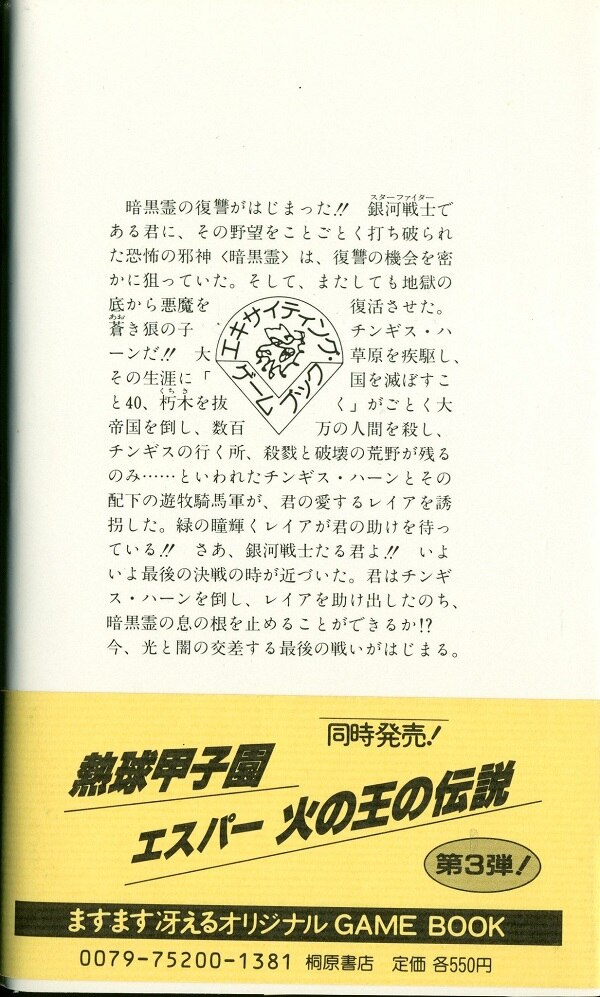 暗黒霊の復讐がはじまった!! 銀河戦士で
スターファイター
ある君に、その野望をことごとく打ち破られ
た恐怖の邪神〈暗黒霊〉は、復讐の機会を密
かに狙っていた。そして、またしても地獄の
底から悪魔を 復活させた。
あお
蒼き狼の子 チンギス・ハ
ーンだ!! 大 草原を疾駆し、
その生涯に「 国を滅ぼすこ
くちき
と40、朽木を抜 く」がごとく大
帝国を倒し、数百 万の人間を殺し、
エキサイティング・
ゲームブック
チンギスの行く所、殺戮と破壊の荒野が残る
のみ……といわれたチンギス・ハーンとその
配下の遊牧騎馬軍が、君の愛するレイアを誘
拐した。緑の瞳輝くレイアが君の助けを待っ
ている!! さあ、銀河戦士たる君よ!! いよ
いよ最後の決戦の時が近づいた。君はチンギ
ス・ハーンを倒し、レイアを助け出したのち、
暗黒霊の息の根を止めることができるか!?
今、光と闇の交差する最後の戦いがはじまる。
同時発売!
熱球甲子園
エスパー 火の王の伝説
第3弾!
ますます冴えるオリジナル GAME BOOK
0079-75200-1381 桐原書店 定価 各550円